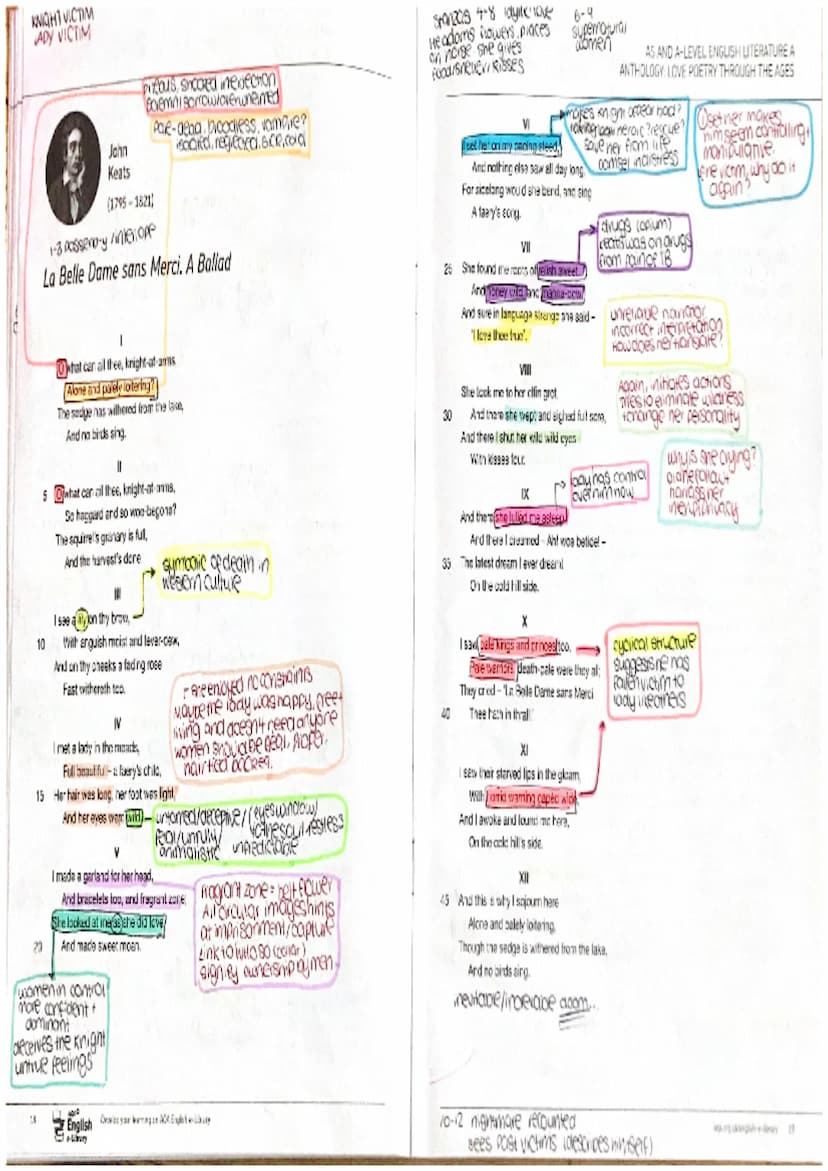 KNIGHT VICTIM
LADY VICTIM
piteous, shocked interjection
solemn, sorrow/overwhelmed
Pale-dead, bloodless, vampire?
isolated, rejected, sick, cold
John
Keats
(1795 – 1821)
1-3 passerby/interlope
La Belle Dame sans Merci. A Ballad
I
O what can ail thee, knight-at-arms,
Alone and palely loitering?
The sedge has withered from the lake,
And no birds sing.
II
5 O what can ail thee, knight-at-arms,
So haggard and so woe-begone?
The squirrel's granary is full,
And the harvest's done.
symbolic of death in
western culture
III
I see a lily on thy brow,
10 With anguish moist and fever-dew,
And on thy cheeks a fading rose
Fast withereth too.
IV
I met a lady in the meads,
Full beautiful – a faery's child,
15 Her hair was long, her foot was light,
And her eyes were wild.
she enjoyed no constraints
Maybe the lady was happy, free
living and doesn't need anyone
women should be delicate, proper,
hair tied back
untamed/deceptive/(eyes window)
feral/unruly to the soul restless
animalistic unpredictable
V
I made a garland for her head,
And bracelets too, and fragrant zone;
She looked at me as she did love,
20 And made sweet moan.
fragrant zone = belt flower
All circular images hints
at imprisonment/capture
Link to Whoso (collar)
signify ownership by men
women in control
more confident +
dominant
deceives the knight
untrue feelings
18 AQA English e-Library Develop your learning on AQA English e-Library
stanzas 4-8 idyllic love
He adorns flowers, places
on horse she gives
food/shelter/kisses
6-9
supernatural
women
AS AND A-LEVEL ENGLISH LITERATURE A
ANTHOLOGY: LOVE POETRY THROUGH THE AGES
VI
I set her on my pacing steed,
And nothing else saw all day long,
For sidelong would she bend, and sing
A faery's song.
makes knight appear bad?
taking/look heroic? rescue?
save her from life
damsel in distress
I set her makes
him seem controlling +
manipulative.
If re victim, why do it
again?
VII
25 She found me roots of relish sweet,
And honey wild, and manna-dew,
And sure in language strange she said –
'I love thee true'.
drugs (opium)
Keats was on drugs
from pain of TB
unreliable narrator
incorrect interpretation
How does he translate?
VIII
She took me to her elfin grot,
30 And there she wept and sighed full sore,
And there I shut her wild wild eyes
With kisses four.
Again, initiates actions
tries to eliminate wildness
+ change her personality
why is she crying?
did he follow +
harass her
interrupt privacy
IX
And there she lullèd me asleep
And there I dreamed – Ah! woe betide! –
35 The latest dream I ever dreamt
On the cold hill side.
lady has control
over him now
X
I saw pale kings and princes too,
Pale warriors, death-pale were they all;
They cried – 'La Belle Dame sans Merci
40 Thee hath in thrall!'
cyclical structure
suggests he has
fallen victim to
lady like others
XI
I saw their starved lips in the gloam,
With horrid warning gapèd wide,
And I awoke and found me here,
On the cold hill's side.
XII
45 And this is why I sojourn here
Alone and palely loitering,
Though the sedge is withered from the lake,
And no birds sing.
inevitable/inexorable doom...
10-12 nightmare recounted
sees past victims (describes himself)
aqa.org.uk/english-e-library 19